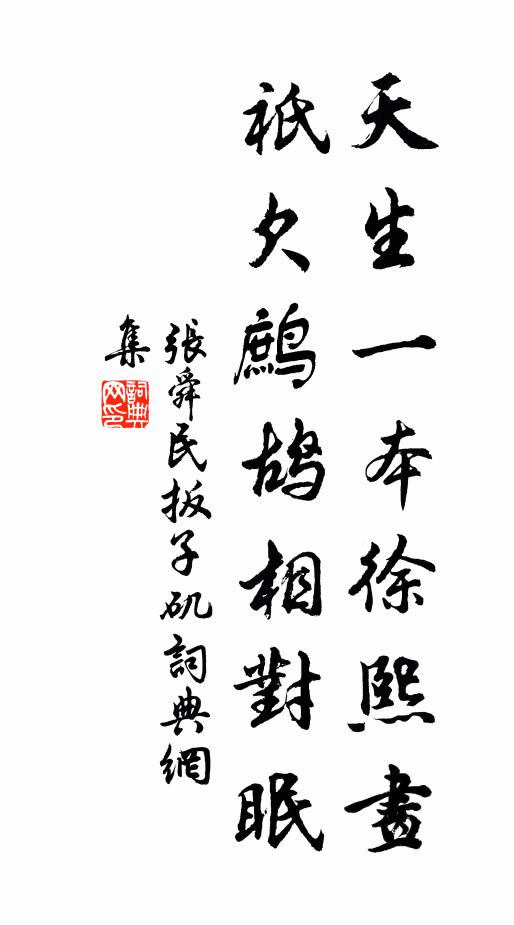 天生一本徐熙畫
祇欠鷓鴣相對眠
張舜民扳子矶詞典網
集
詞典网印